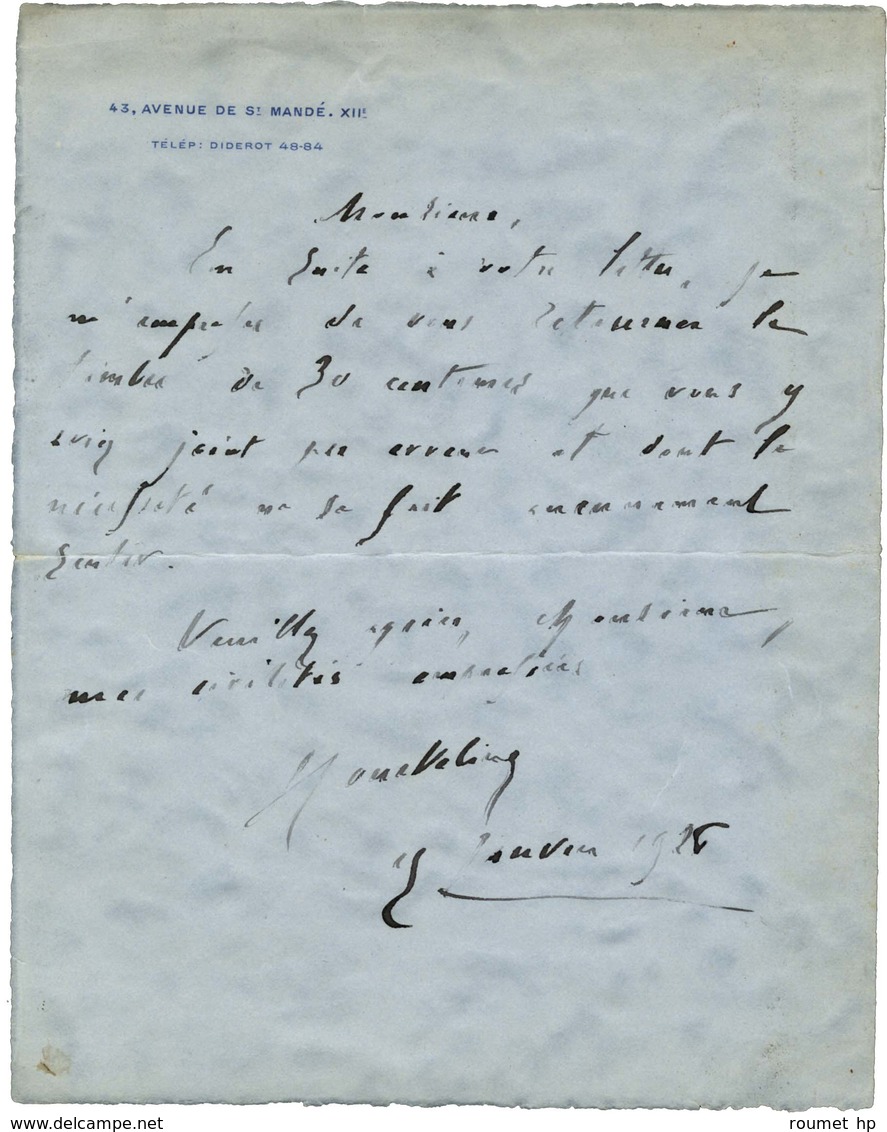 43, AVENUE DE St MANDÉ. XIIe
TÉLÉP: DIDEROT 48-84
Monsieur,
En suite à votre lettre, je
m'empresse de vous retourner le
timbre de 30 centimes que vous y
aviez joint par erreur et dont la
nécessité ne se fait aucunement
sentir.
Veuillez agréer, Monsieur,
mes civilités empressées
Janvier 1926
www.delcampe.net
roumet hp